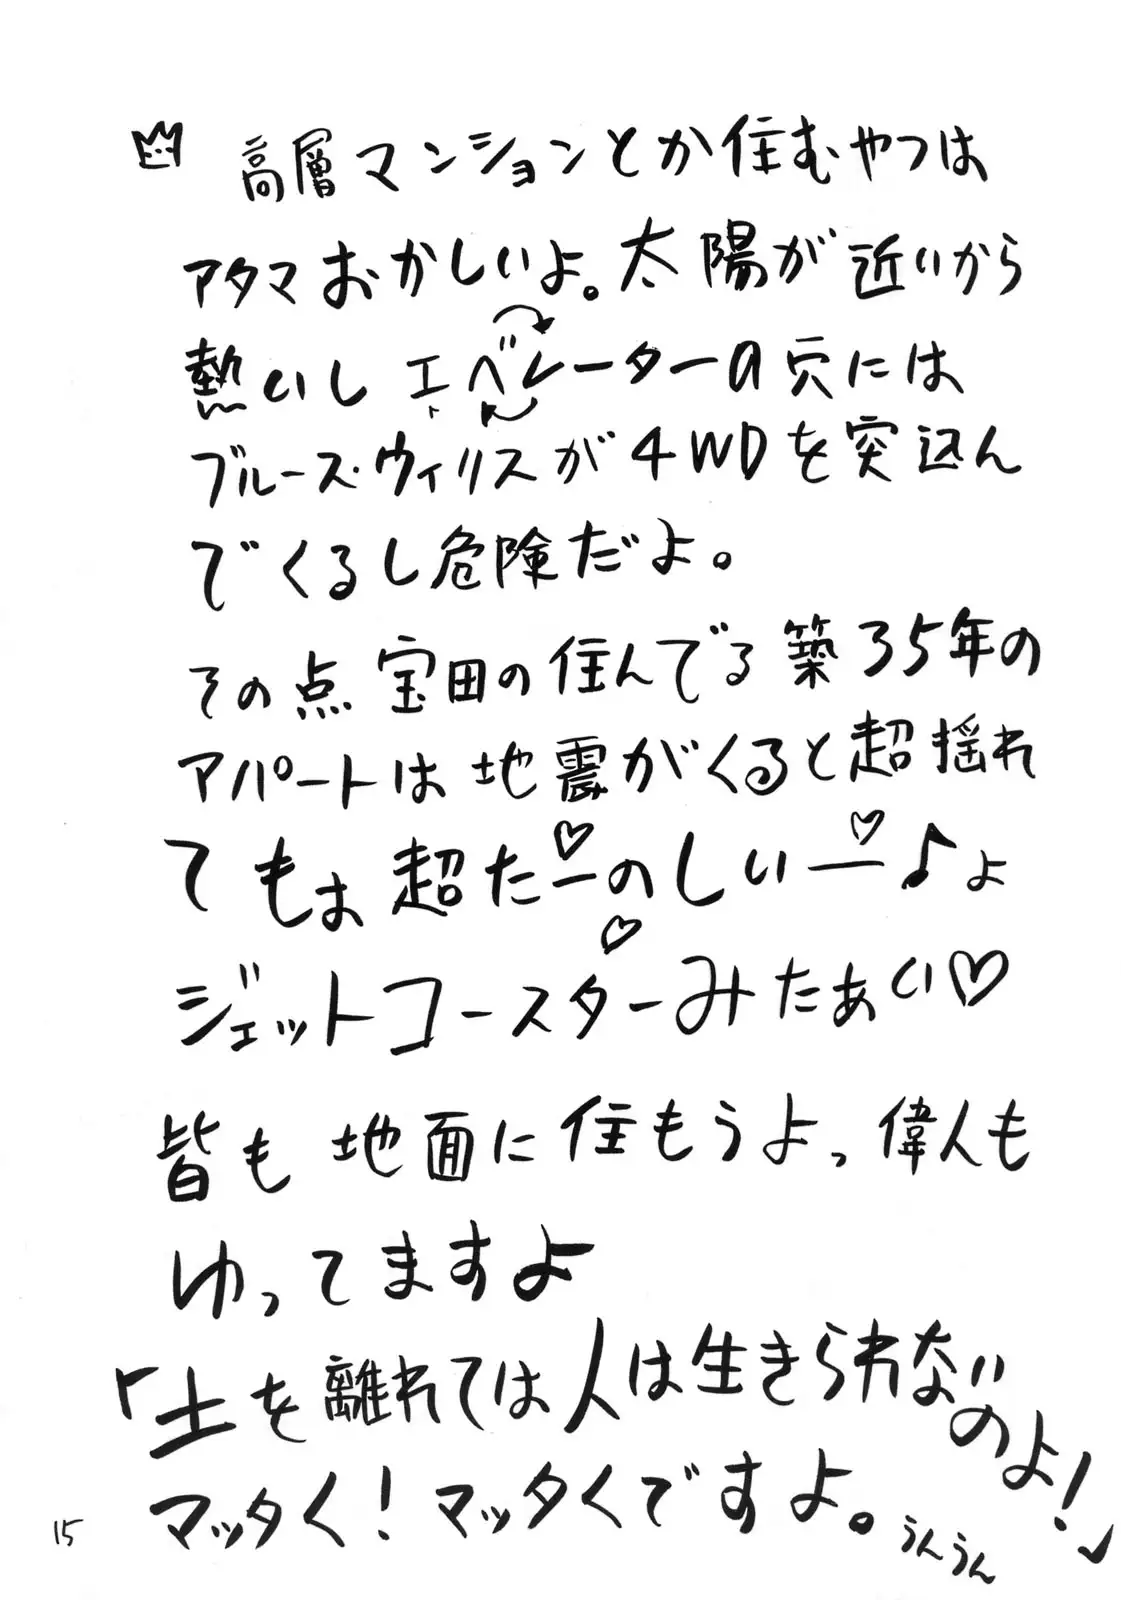 高層マンションとか住むやつは
アタマおかしいよ。太陽が近いから
熱いし エベレーターの穴には
ブルース・ウィリスが4WDを突込ん
でくるし危険だよ。
その点 宝田の住んでる築35年の
アパートは地震がくると超揺れ
てもぉ超たーのしいー♪ょ
ジェットコースターみたぁい♡
皆も地面に住もうよっ 偉人も
ゆってますよ
「土を離れては人は生きられないのよ!」
マッタく!マッタくですよ。うんうん
15